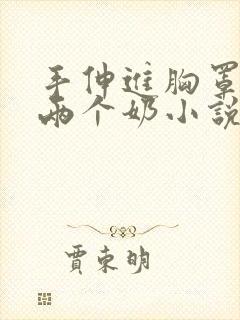 手伸进胸罩
两个奶小说
贾东明